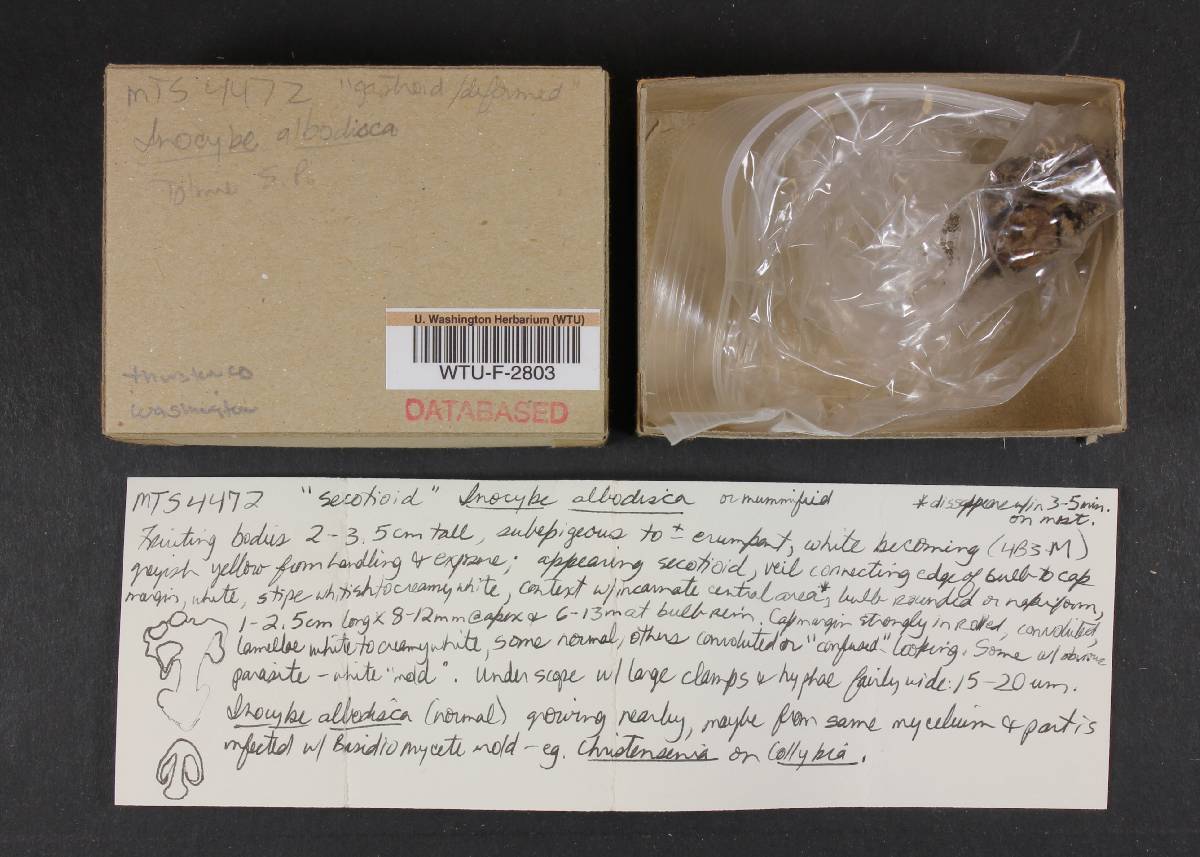 MTS 4472 "gastroid/deformed"
Inocybe albodisca
Tolmie S.P.
Thurston Co
Washington
U. Washington Herbarium (WTU)
WTU-F-2803
DATABASED
MTS4472 "secotioid" Inocybe albodisca or mummified
*disappears w/in 3-5 min. on mst.
Fruiting bodies 2-3.5cm tall, subepigeous to ± erumpent, white becoming (4B3·M)
grayish yellow from handling & exposure; appearing secotioid, veil connecting edge of bulb to cap
margin, white, stipe whitish to creamy white, context w/incarnate central area*, bulb rounded or napiform,
1-2.5cm long x 8-12mm @ apex & 6-13mm at bulb. Cap margin strongly inrolled, convoluted,
lamellae white to creamy white, some normal, others convoluted or "confused" looking. Some w/ obvious
parasite - white "mold". Under scope w/ large clamps & hyphae fairly wide: 15-20 um.
Inocybe albodisca (normal) growing nearby, maybe from same mycelium & part is
infected w/ Basidiomycete mold - eg. Christensenia on Collybia.